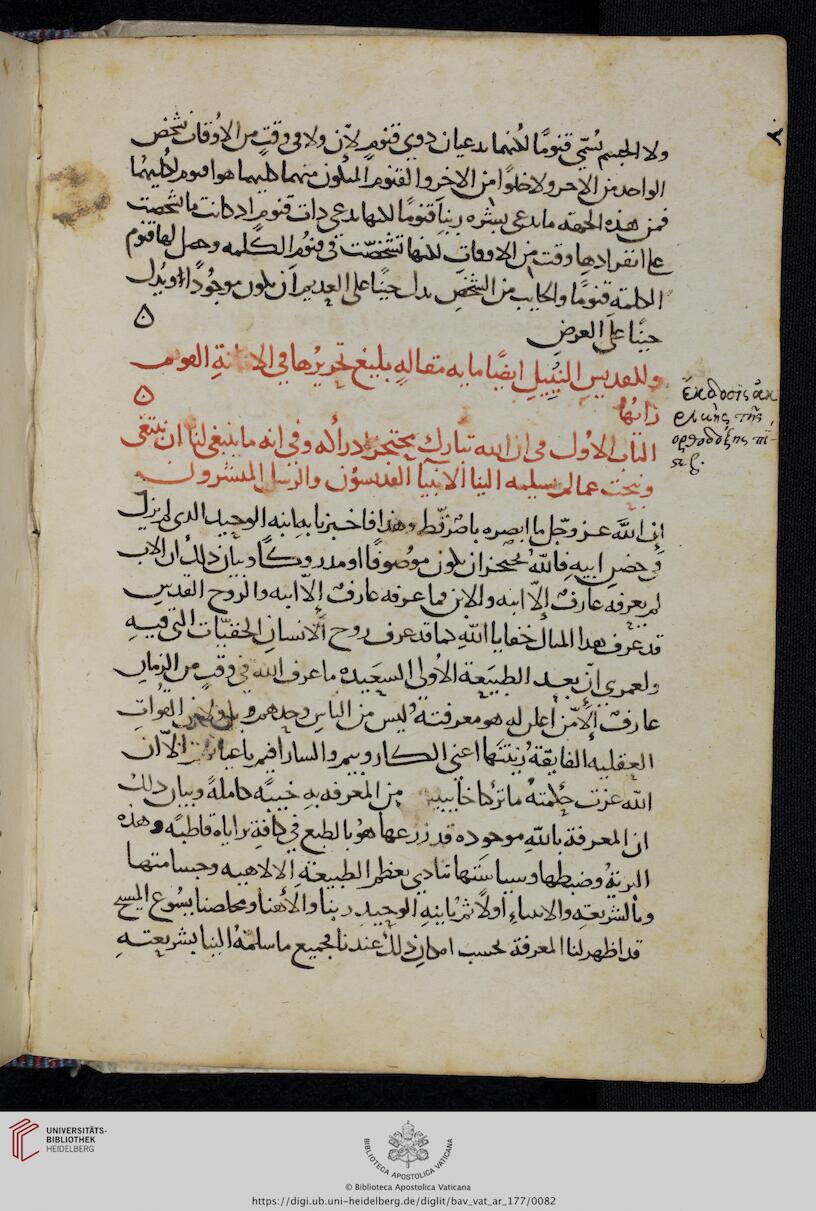 ولا الجسم يُسمّى قنومًا لكنهما يدعيان ذوي قنومٍ لأن ولا في وقتٍ من الاوقات شخص
الواحد من الاخر ولا خلوًا من الاخر والقنوم المتكون منهما كليهما هو اقنوم لكليهما
فمن هذه الجهة ما يدعى بشره ربنا قنومًا لكنها يدعى ذات قنومٍ اذ كانت ما تشخصت
على انفرادها وقت من الاوقات لكنها تشخصّت في قنوم الكلمه وحصل لها قنوم
الكلمة قنومًا والكاين من الشخص يدل حينًا على العديم أن يكون موجودًا ويُدل
حينًا على العرض
وللقديس ايضًا مايه مقاله بليغ تحريرها في الامانةِ القويم
رايُها
الباب الاول في ان الله تبارك يحتجز ادراكه وفي انه ما ينبغي لنا ان نبتغي
ونبحث عما لم يسلمه الينا الانبيا القديسون والرسل المبشرون
إن الله عز وجل ما ابصره باصرٌ قط وهذا فاخبرنا به ابنه الوحيد الذي لم يزل
في حضن ابيهِ فاللهُ محتجز ان يكون موصوفًا او مدروكًا وبيان ذلك ان الاب
لم يعرفه عارفٌ إلّا ابنه والابن فما عرفه عارفٌ إلّا ابيه والروح القدس
قد عرف بهذا المثال خفايا اللهِ كما قد عرف روح الانسانِ الخفيّات التي فيهِ
ولعمري ان بعد الطبيعة الاولى السعيده ما عرف الله في وقتٍ من الزمان
عارفٌ إلّا من أعلن له هو معرفته ليس من الناسِ وحدهم بل ولا من القوات
العقليه الفايقة رتبتها اعني الكاروبيم والسارافيم باعيانهم إلّا ان
الله عزت حكمتهُ ما تركنا خايبين من المعرفه بهِ خيبةً كاملةً وبيان ذلك
ان المعرفة باللهِ موجوده قد زرعها هو بالطبع في كافةِ براياه قاطبةً وهذه
البريةُ وضبطها وسياستها تنادي بعظم الطبيعةِ الالاهيه وجسامتها
وبالشريعةِ والانبياءِ أولًا ثم بابنهِ الوحيدِ ربنا والاهنا ومخلصنا يسوع المسيح
قد اظهر لنا المعرفة بحسب امكان ذلك عندنا فجميع ما سلمهُ الينا بشريعتهِ
Ἔκδοσις ἀκ
ριβὴς τῆς
ὀρθοδόξης πί-
στεως.
UNIVERSITÄTS-
BIBLIOTHEK
HEIDELBERG
BIBLIOTECA APOSTOLICA VATICANA
© Biblioteca Apostolica Vaticana
https://digi.ub.uni-heidelberg.de/diglit/bav_vat_ar_177/0082